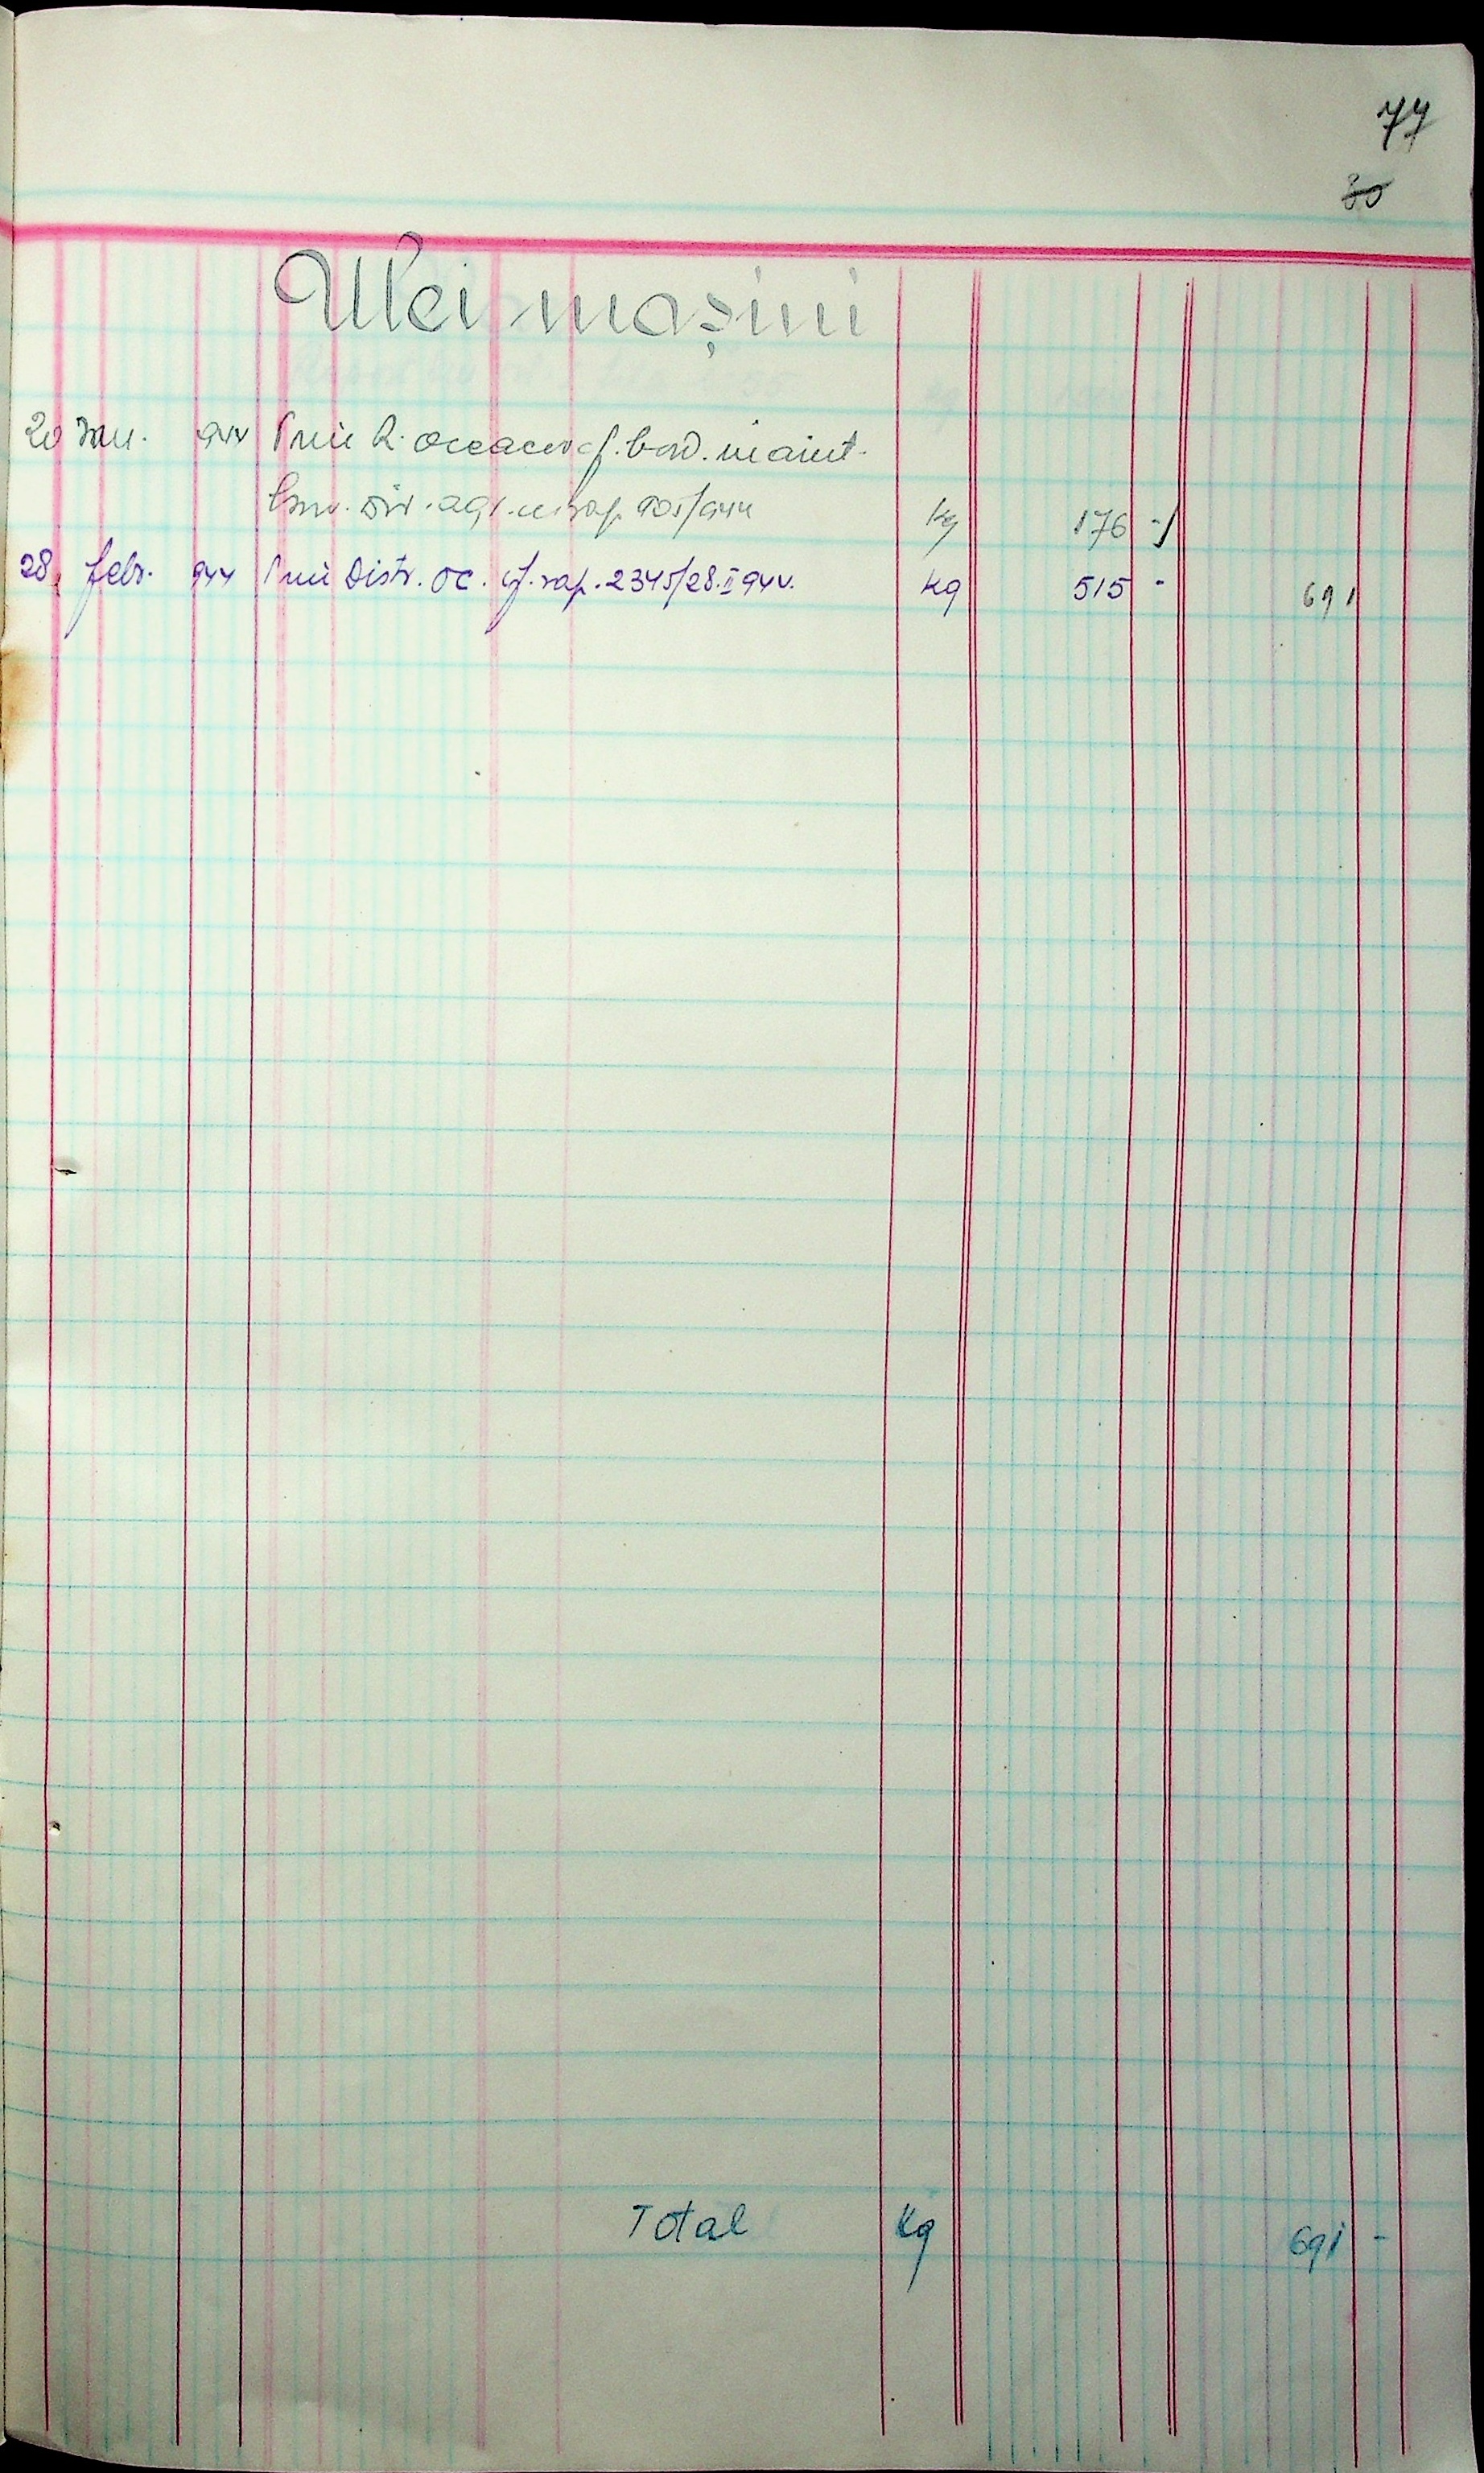 77
80
Ulei mașini
20 Ian. 944 Prin R. cf. bord. inaint.
Dir. agr. cu rap. 905/944 kg 176 -
28 febr. 944 Prin Distr. Oc. cf. rap. 2345/28.II 944. kg 515 - 691
Total Kg 691 -